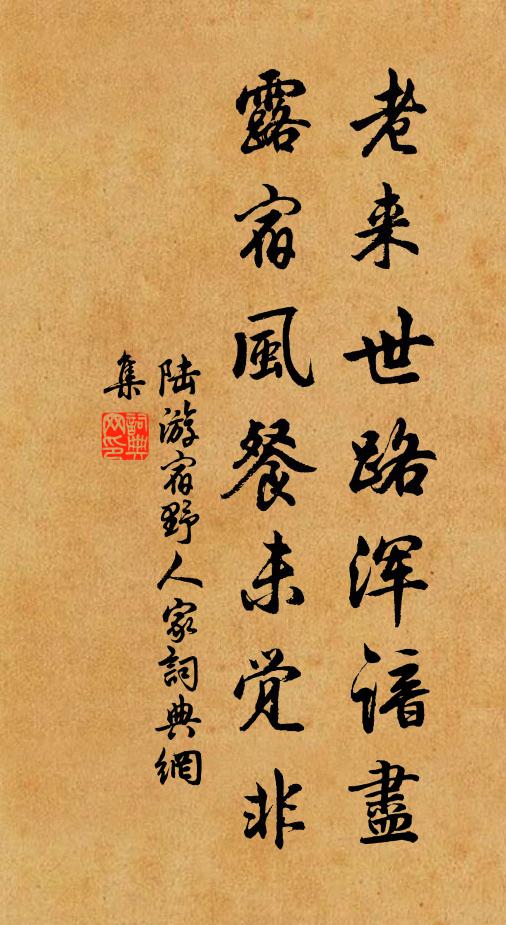 老来世路浑谙盡
露宿風餐未觉非
陆游宿野人家詞典網
集
詞典网印